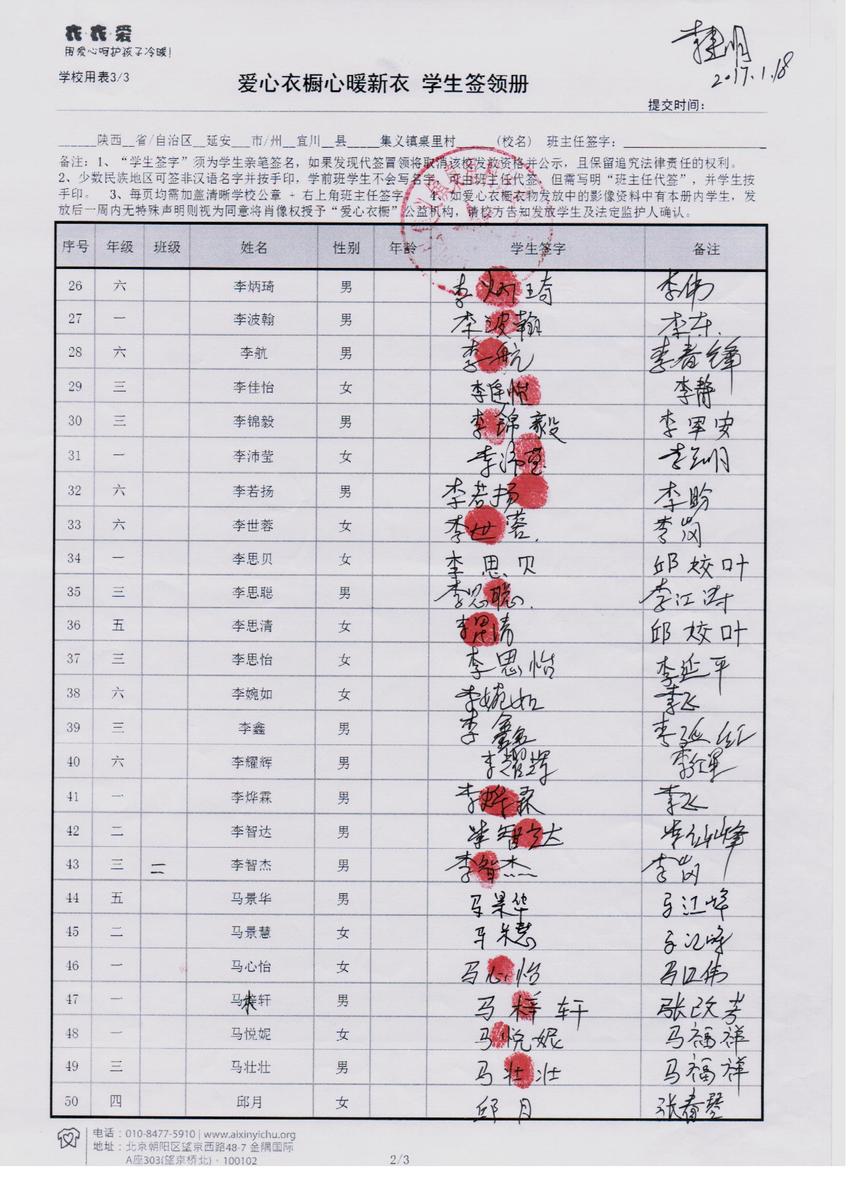 衣·衣·爱
用爱心呵护孩子冷暖!
学校用表3/3
李建明
2017.1.18
爱心衣橱心暖新衣 学生签领册
提交时间:
_____陕西__省/自治区__延安__市/州__宜川__县_____集义镇桌里村______(校名) 班主任签字:
备注:1、“学生签字”须为学生亲笔签名,如果发现代签冒领将取消该校发放资格并公示,且保留追究法律责任的权利。
2、少数民族地区可签非汉语名字并按手印,学前班学生不会写名字,可由班主任代签,但需写明“班主任代签”,并学生按
手印。 3、每页均需加盖清晰学校公章 + 右上角班主任签字。 4、如爱心衣橱衣物发放中的影像资料中有本册内学生,发
放后一周内无特殊声明则视为同意将肖像权授予“爱心衣橱”公益机构,请校方告知发放学生及法定监护人确认。
序号 年级 班级 姓名 性别 年龄 学生签字 备注
26 六 李炳琦 男 李炳琦 李伟
27 一 李波翰 男 李波翰 李东.
28 六 李航 男 李航 李春锋
29 三 李佳怡 女 李佳怡 李静
30 三 李锦毅 男 李锦毅 李军安
31 一 李沛莹 女 李沛莹
32 六 李若扬 男 李若扬 李盼
33 六 李世蓉 女 李世蓉. 李岗
34 一 李思贝 女 李思贝 邱姣叶
35 三 李思聪 男 李思聪. 李江涛
36 五 李思清 女 李思清 邱姣叶
37 三 李思怡 女 李思怡 李延平
38 六 李婉如 女 李婉如 李飞
39 三 李鑫 男 李鑫 李延红
40 六 李耀辉 男 李耀辉 李红军
41 一 李烨霖 男 李烨霖 李飞
42 二 李智达 男 李智达
43 三 二 李智杰 男 李智杰 李岗
44 五 马景华 男 马景华 马江峰
45 二 马景慧 女 马景慧 马江峰
46 一 马心怡 女 马心怡 马红伟
47 一 马梓轩 男 马梓轩 张改芳
48 一 马悦妮 女 马悦妮 马福祥
49 三 马壮壮 男 马壮壮 马福祥
50 四 邱月 女 邱月 张春琴
电话:010-8477-5910 | www.aixinyichu.org
地址:北京朝阳区望京西路48-7 金隅国际
A座303(望京桥北)·100102
2/3